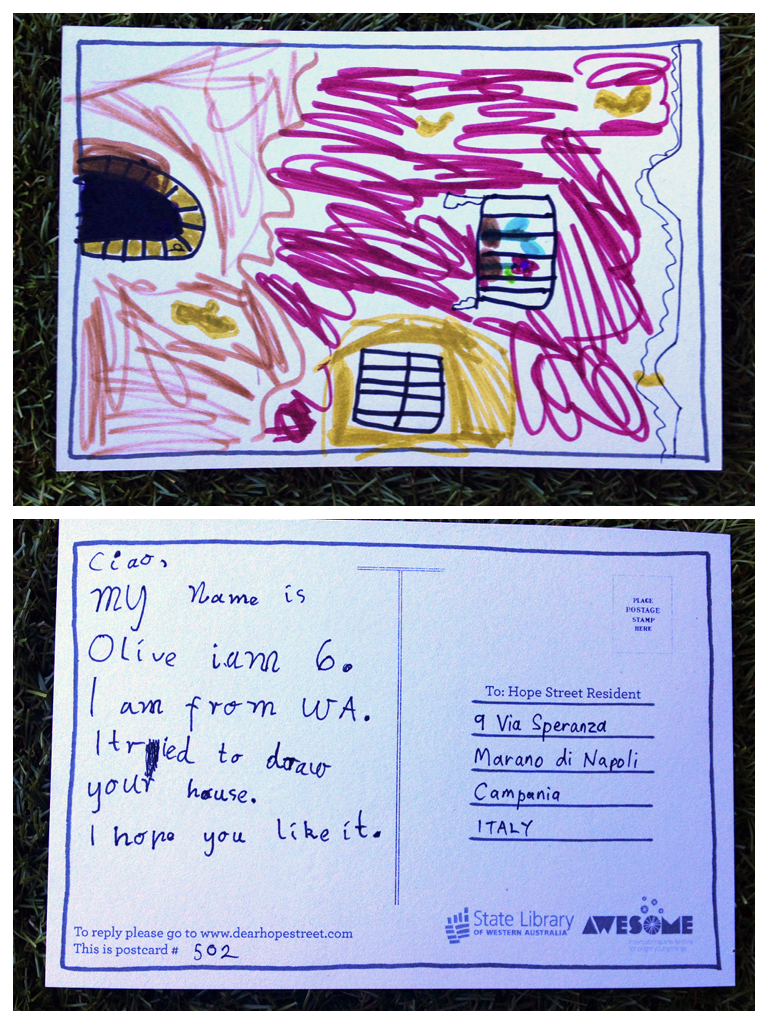 9
Ciao,
My Name is
Olive i am 6.
I am from WA.
I tried to draw
your house.
I hope you like it.
PLACE
POSTAGE
STAMP
HERE
To: Hope Street Resident
9 Via Speranza
Marano di Napoli
Campania
ITALY
To reply please go to www.dearhopestreet.com
This is postcard # 502
State Library
OF WESTERN AUSTRALIA
AWESOME